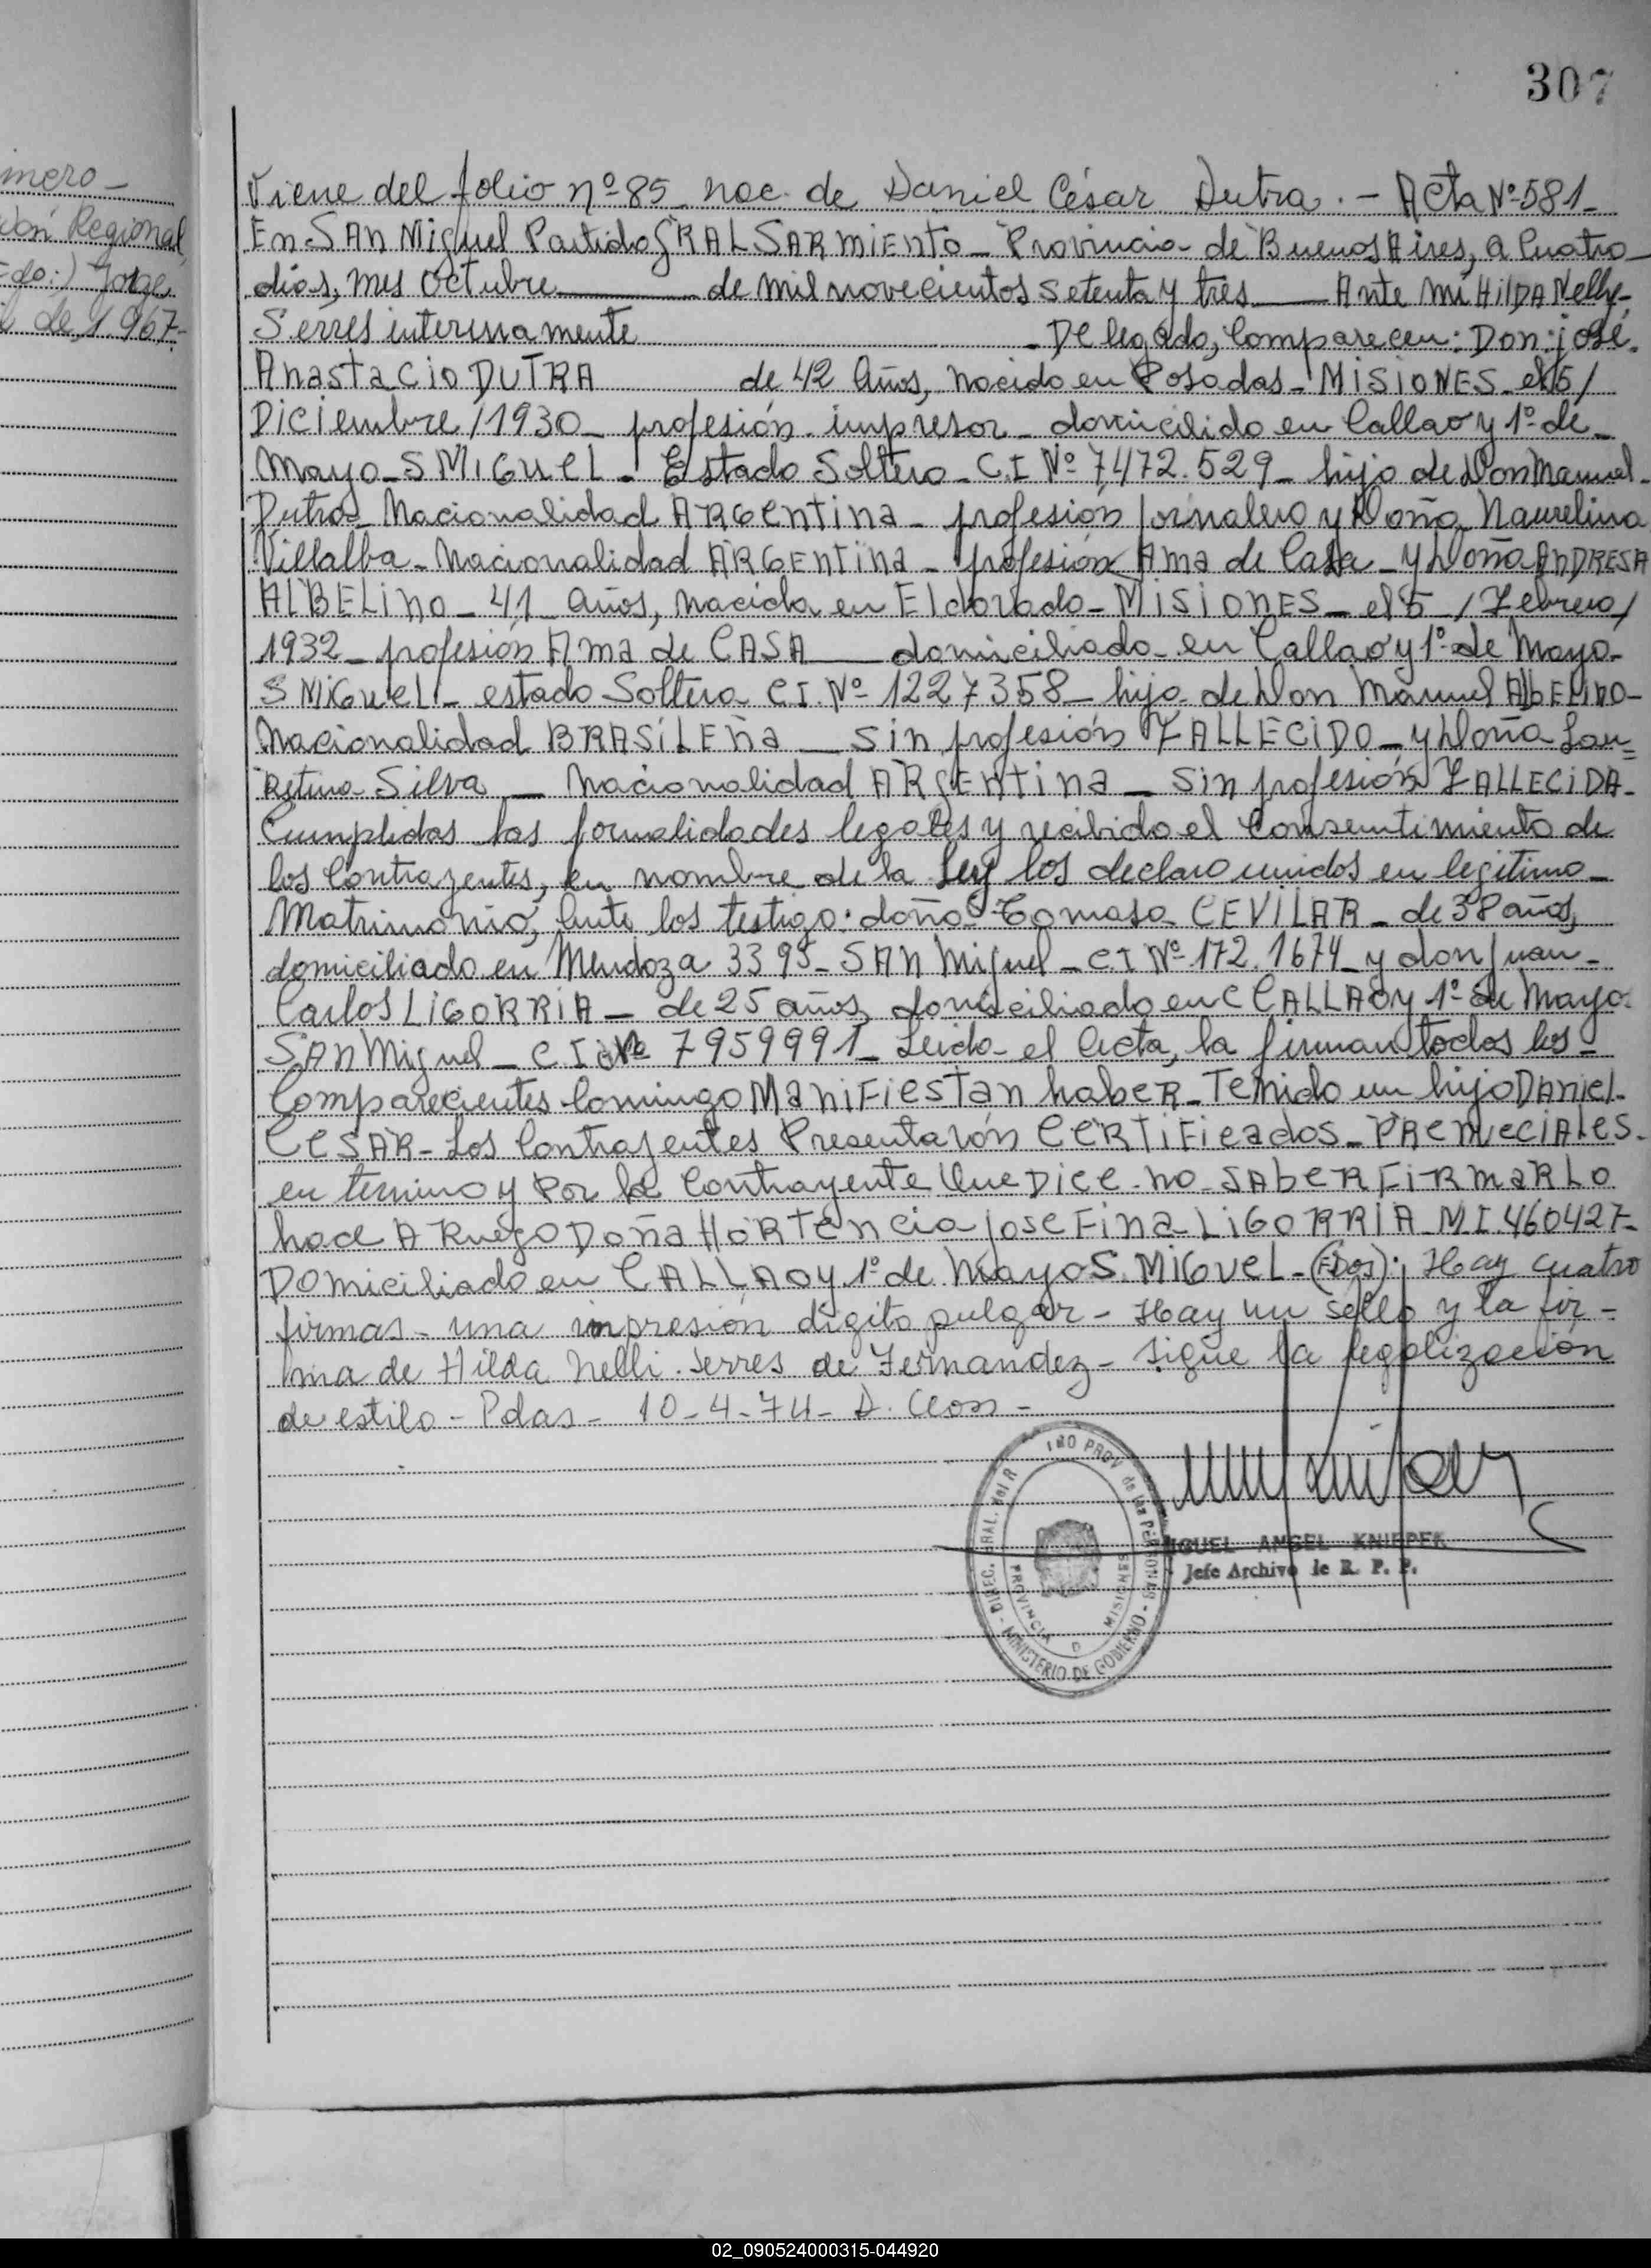 307
mero _
Regional
do:) Jorge
de 1.967.
Viene del folio nº 85 nac. de Daniel César Dutra. - Acta Nº 581_
En SAN Miguel Partido GRAL SARMIENTO _ Provincia de Buenos Aires, a Cuatro _
dias, mes Octubre _____ de mil novecientos setenta y tres ___ Ante mi HILDA Nelly _
Serres interinamente _____ Delegado, Comparecen: Don: José
Anastacio DUTRA de 42 Años, nacido en Posadas _ MISIONES _ el 15/
Diciembre/1930 _ profesión impresor _ domicilido en Callao y 1º de _
Mayo _ S MIGUEL _ Estado Soltero _ C.I Nº 7472.529 _ hijo de Don Manuel _
Dutra _ Nacionalidad ARGENTINA _ profesión Jornalero y Doña Naurelina
Villalba _ Nacionalidad ARGENTINA _ profesión Ama de Casa _ y Doña ANDRESA
ALBELINO _ 41 Años, nacida en Eldorado _ MISIONES _ el 5 / Febrero /
1932 _ profesión Ama de CASA ___ domiciliado en Callao y 1º de Mayo _
S MIGUEL _ estado Soltera C.I. Nº 1227358 _ hija de Don Manuel ALBELINO _
Nacionalidad BRASILEÑA __ Sin profesión FALLECIDO _ y Doña Lau=
retina Silva _ Nacionalidad ARGENTINA _ Sin profesión FALLECIDA _
Cumplidas las formalidades legales y recibido el Consentimiento de
los Contrayentes, en nombre de la Ley los declaro unidos en legitimo _
Matrimonio, Ante los testigo: doña Tomasa CEVILAR _ de 38 años,
domiciliado en Mendoza 3395 _ SAN Miguel _ C.I Nº 172.1674 _ y don Juan _
Carlos LIGORRIA _ de 25 años, domiciliado en C CALLAO y 1º de Mayo.
SAN Miguel _ C I Nº 7959991 _ Leida el Acta, la firman todos los _
Comparecientes Conmigo MANIFIESTAN haber Tenido un hijo DANIEL _
CESAR _ Los Contrayentes Presentarón CERTIFICADOS _ PRENUCIALES _
en termino y Por la Contrayente Que DICE no SABER FIRMAR LO
hace A RUEGO DOÑA HORTENCIA JOSEFINA LIGORRIA M.I. 460427 _
Domiciliado en CALLAO y 1º de Mayo S. MIGUEL _ (FDos): Hay cuatro
firmas _ una impresión digito pulgar _ Hay un sello y la fir -
ma de Hilda Nelli Serres de Fernandez _ Sigue la legalización
de estilo _ Pdas _ 10-4-74 _
MIGUEL ANGEL KNIEPER
Jefe Archivo de R. P. P.
PROV de las PERSONAS - MINISTERIO DE GOBIERNO - DIREC. GRAL. del R
PROVINCIA D MISIONES
02_090524000315-044920